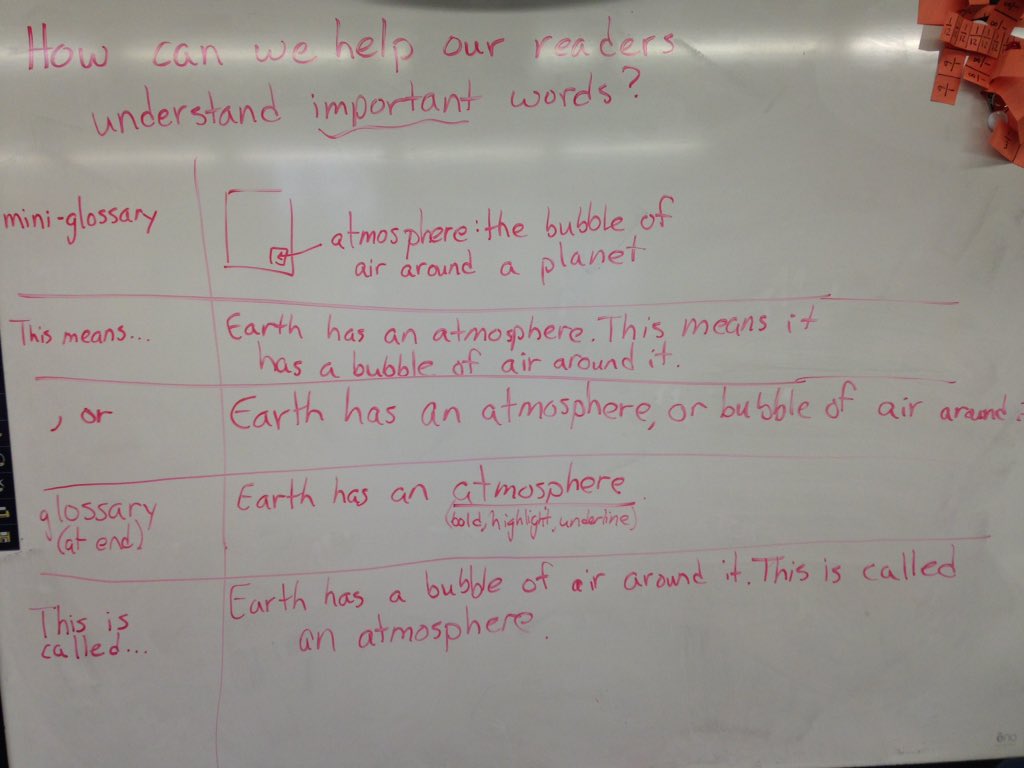 How can we help our readers
understand important words?
mini-glossary
atmosphere: the bubble of
air around a planet
This means...
Earth has an atmosphere. This means it
has a bubble of air around it.
, or
Earth has an atmosphere, or bubble of air around
glossary
(at end)
Earth has an atmosphere.
(bold, highlight, underline)
This is
called...
Earth has a bubble of air around it. This is called
an atmosphere.